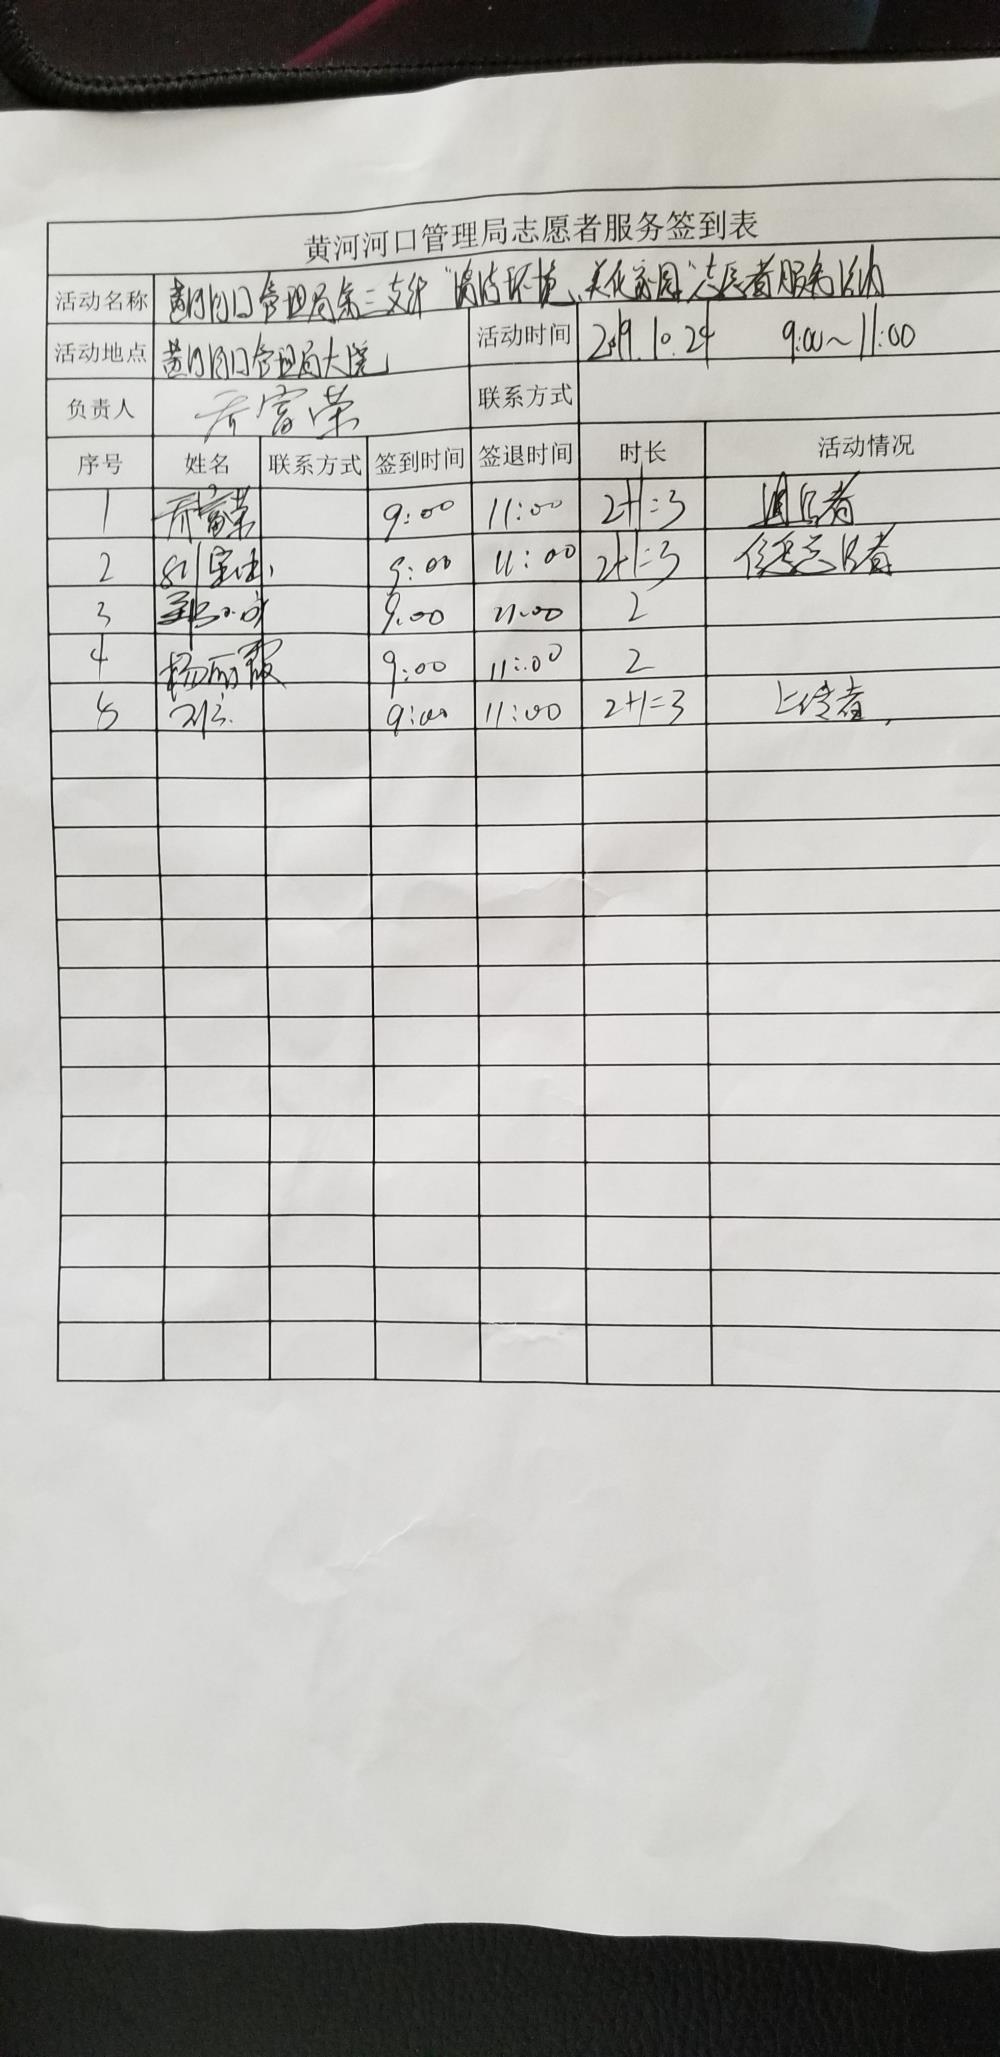 黄河河口管理局志愿者服务签到表
活动名称 黄河河口管理局第三支部"清洁环境、美化家园"志愿者服务活动
活动地点 黄河河口管理局大院 活动时间 2019.10.24 9:00~11:00
负责人 乔富荣 联系方式
序号 姓名 联系方式 签到时间 签退时间 时长 活动情况
1 乔富荣 9:00 11:00 2+1=3
2 9:00 11:00 2+1=3 志愿者
3 9:00 11:00 2
4 杨丽霞 9:00 11:00 2
5 9:00 11:00 2+1=3 上传者